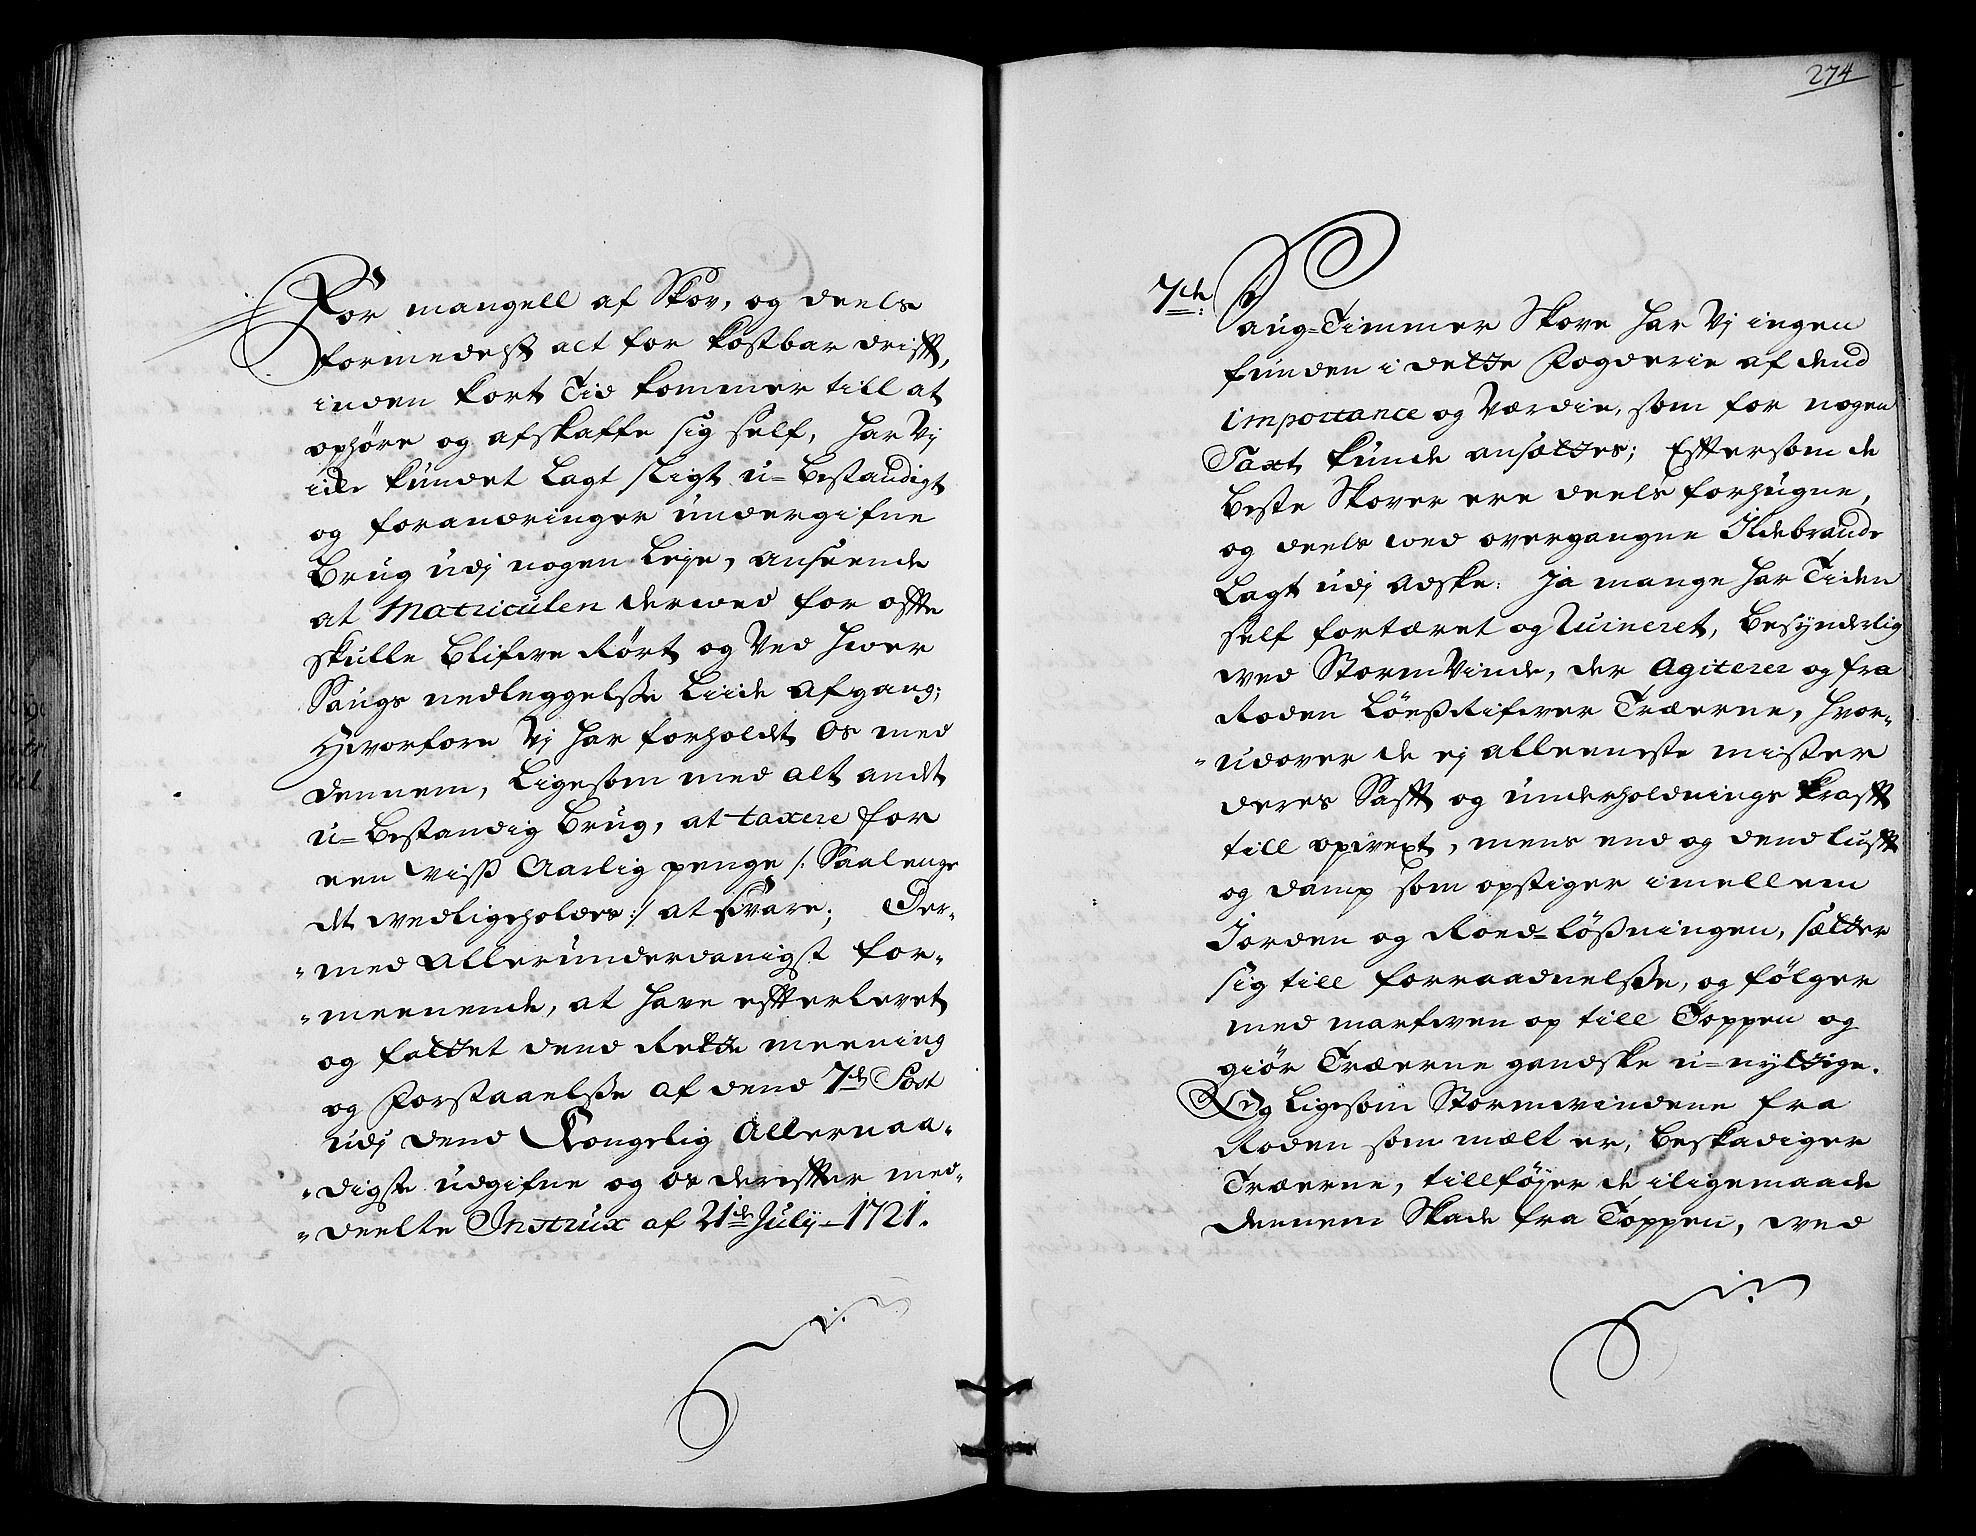 For mangell af Skov, og deels
formedelst alt for kostbar drifft,
inden kort Tid kommer till at
ophøre og afskaffe sig self, har Vj
icke kundet Lagt sligt u=bestandigt
og forandringer undergifne
Brug udj nogen Leje, anseende
at Matriculen derwed for offte
skulle blifwe Rørt og Ved hwer
Saugs nedleggelsse Liide Afgang;
Hvorfore Vj har forholdt Os med
dennem, Ligesom med alt andt
u=bestandig Brug, at taxere for
een wiss Aarlig penge /: Saalenge
dt wedligeholdes :/ at svare; Der-
"med Allerunderdanigst for-
"meenende, at have effterlevet
og fattet dend Rette meening
og Forstaaelsse af dend 7de Post
udj dend Kongelig Allernaa-
"digste udgifne og os dereffter med-
"deelte Instrux af 21de July - 1721.
274
7de:
Saug=Timmer Skove har Vj ingen
funden i dette Fogderie af dend
importance og Værdie, som for nogen
Taxt kunde ansættes; Efftersom de
beste Skover ere deels forhugne,
og deels wed overgangne Ildebrande
Lagt udj Adske: Ja mange har Tiden
self fortæret og Ruineret, besynderlig
wed StormVinde, der Agiterer og fra
Roden LøessRifwer Træerne, hvor-
"udover de ej alleeneste misster
deres Safft og underholdnings krafft
till opwext, mens end og dend lufft
og damp som opstiger imellem
Jorden og Roed=løssningen, sætter
sig till forraadnelsse, og følger
med marfwen op till Toppen og
giør Træerne gandske u=nyttige.
Og Ligesom Stormwindene fra
Roden som mælt er, beskadiger
Træerne, tillføjer de iligemaade
dennem Skade fra Toppen, wed